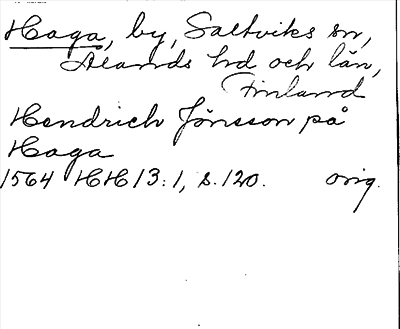 Haga, by, Saltviks sn,
Ålands hd och län,
Finland
Hendrich Jönsson på
Haga
1564 HH 13:1, s. 120. orig.